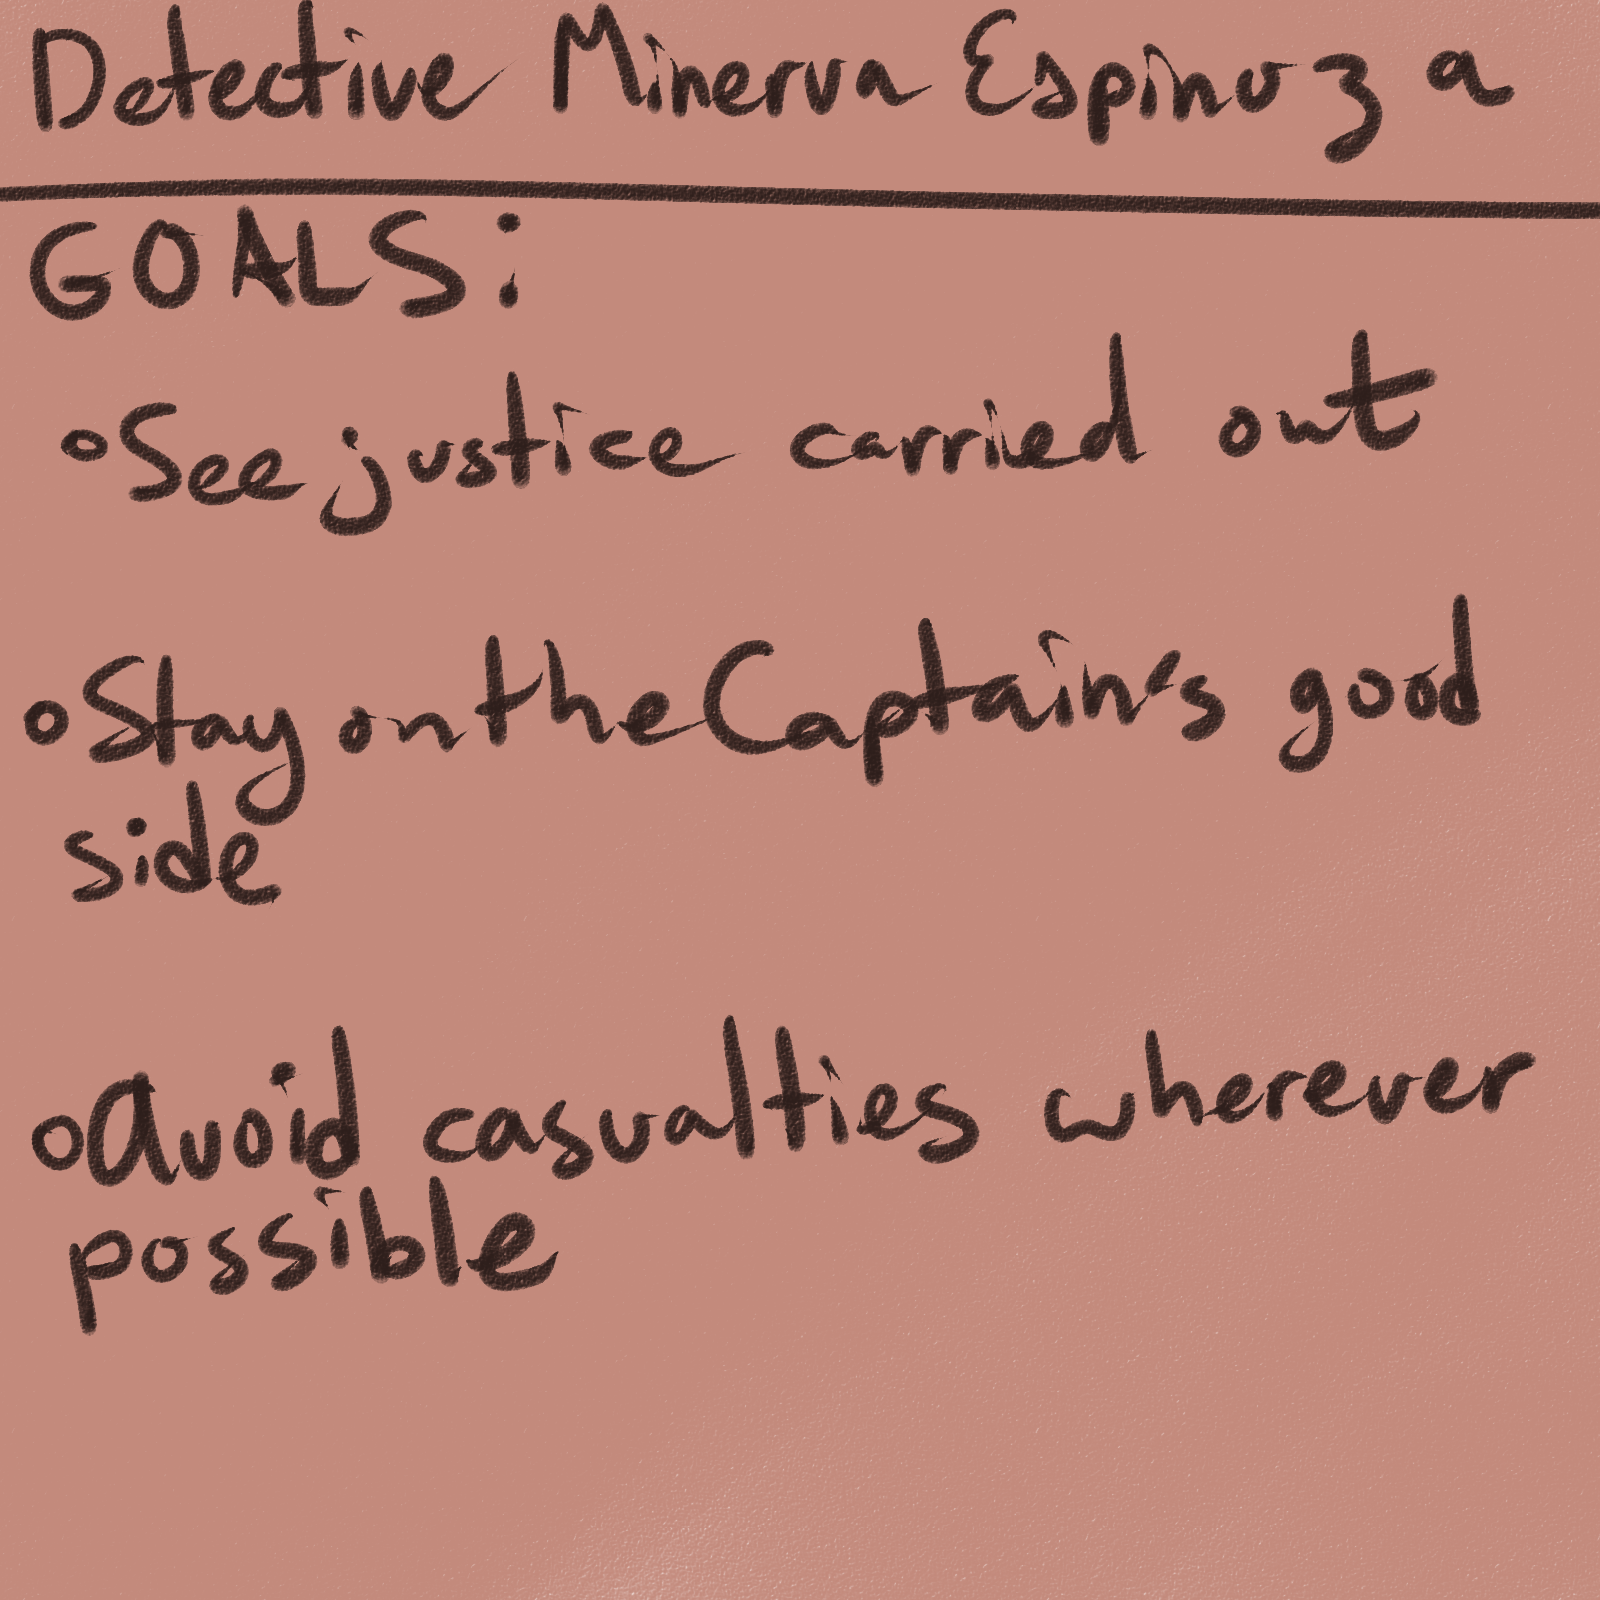 Detective Minerva Espinoza
GOALS:
• See justice carried out
• Stay on the Captain's good
side
• Avoid casualties wherever
possible